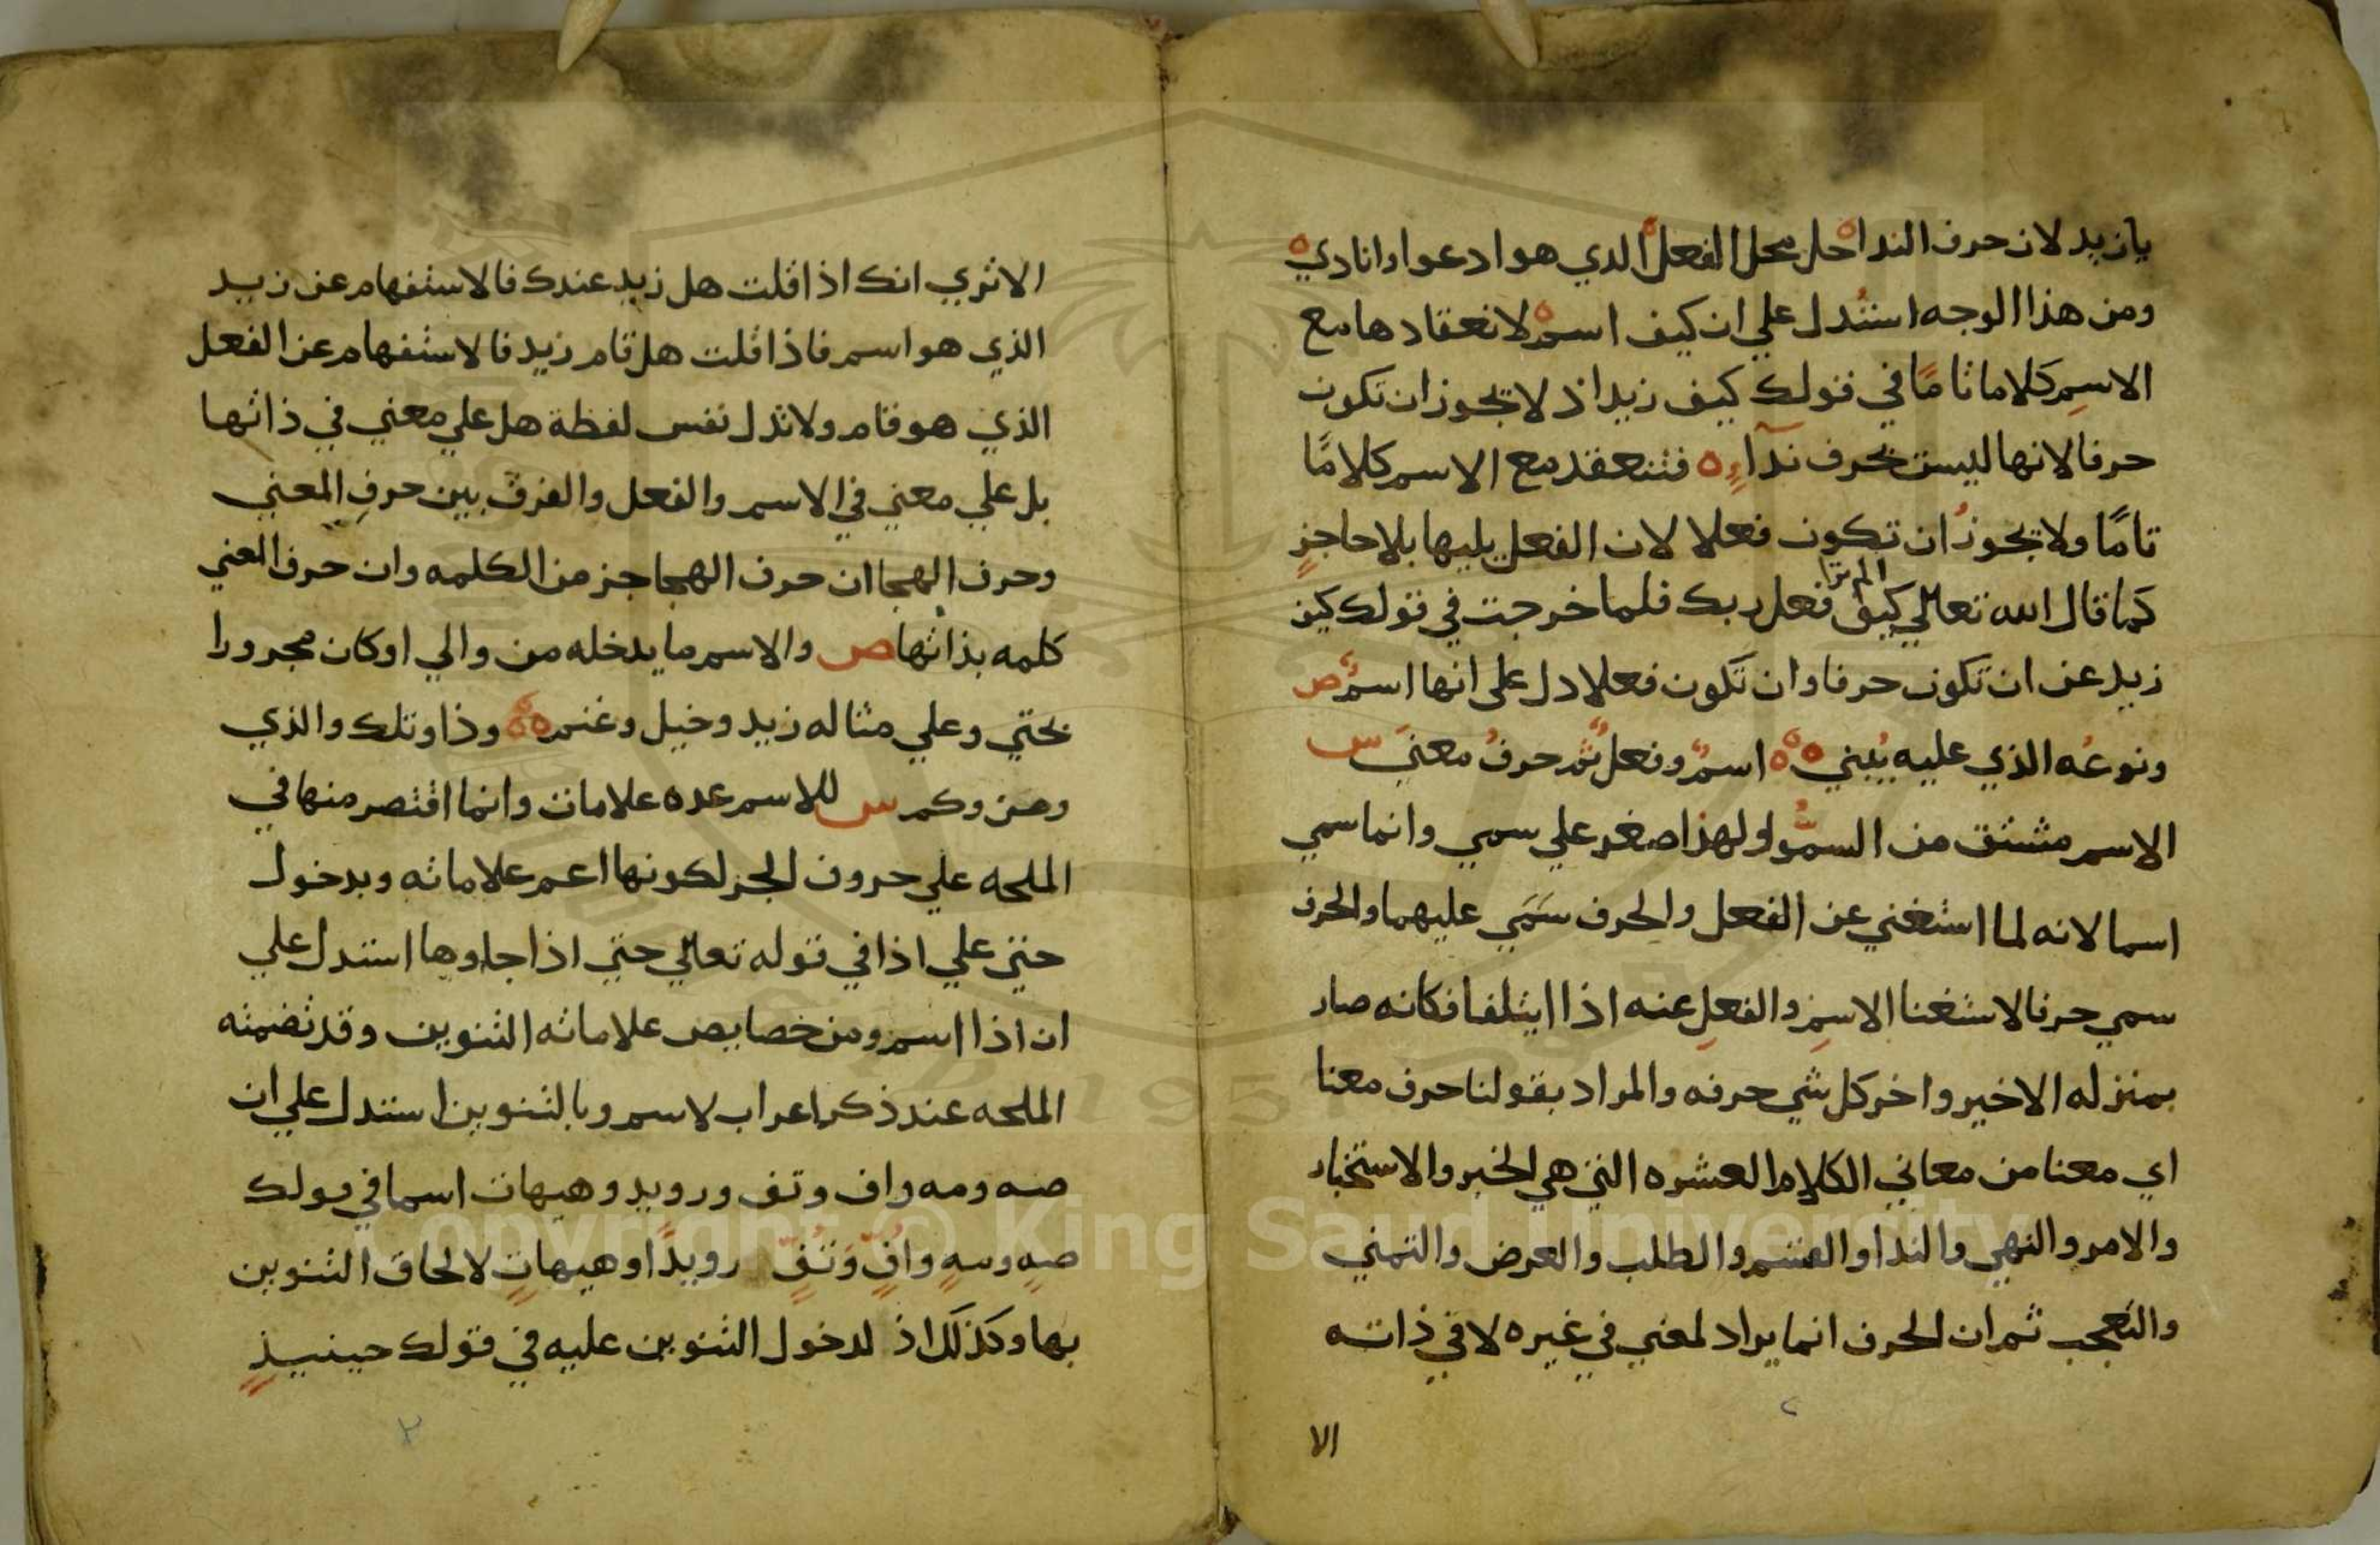 يا زيد لان حرف الندا حل محل الفعل الدي هو ادعوا وانادي
ومن هذا الوجه استدل علي ان كيف اسم لانعقادها مع
الاسم كلاما تامًا في قولك كيف زيد اذ لا يجوز ان تكون
حرفا لانها ليست بحرف ندآء فتنعقد مع الاسم كلامًا
تامًا ولا يجوز ان تكون فعلا لان الفعل يليها بلا حاجز
كما قال الله تعالي الم تر كيف فعل ربك فلما خرجت في قولك كيف
زيد عن ان تكون حرفا وان تكون فعلا دل على انها اسم ص
ونوعه الذي عليه يبني اسم وفعل ثم حرف معني س
الاسم مشتق من السمو ولهذا صغر علي سمي وانما سمي
اسما لانه لما استغني عن الفعل والحرف سمي عليهما والحرف
سمي حرفا لاستغنا الاسم والفعل عنه اذا ايتلفا فكانه صار
بمنزله الاخير واخر كل شي حرفه والمراد بقولنا حرف معنا
اي معنا من معاني الكلام العشره التي هي الخبر والاستخبار
والامر والنهي والندا والقسم والطلب والعرض والتمني
والتعجب ثم ان الحرف انما يراد لمعني في غيره لا في ذاته
الا
٢
الا تري انك اذا قلت هل زيد عندك فالاستفهام عن زيد
الذي هو اسم فاذا قلت هل قام زيد فالاستفهام عن الفعل
الذي هو قام ولا تدل نفس لفظة هل علي معني في ذاتها
بل علي معني في الاسم والفعل والفرق بين حرف المعني
وحرف الهجا ان حرف الهجا جز من الكلمه وان حرف المعني
كلمه بذاتها ص والاسم ما يدخله من والي او كان مجرورا
بحتي وعلي مثاله زيد وخيل وغنم وذا وتلك والذي
ومن وكم س للاسم عده علامات وانما اقتصر منها في
الملحه علي حروف الجر لكونها اعم علاماته وبدخول
حتي علي اذا في قوله تعالي حتي اذا جاوها استدل علي
ان اذا اسم ومن خصايص علاماته التنوين وقد تضمنته
الملحه عند ذكر اعراب لاسم وبالتنوين استدل علي ان
صه ومه واف وتف ورويد وهيهات اسما في قولك
صهٍ ومهٍ وافٍ وتفٍ رويدًا وهيهاتٍ لالحاق التنوين
بها وكذلك اذ لدخول التنوين عليه في قولك حينيذٍ
٢
Copyright © King Saud University